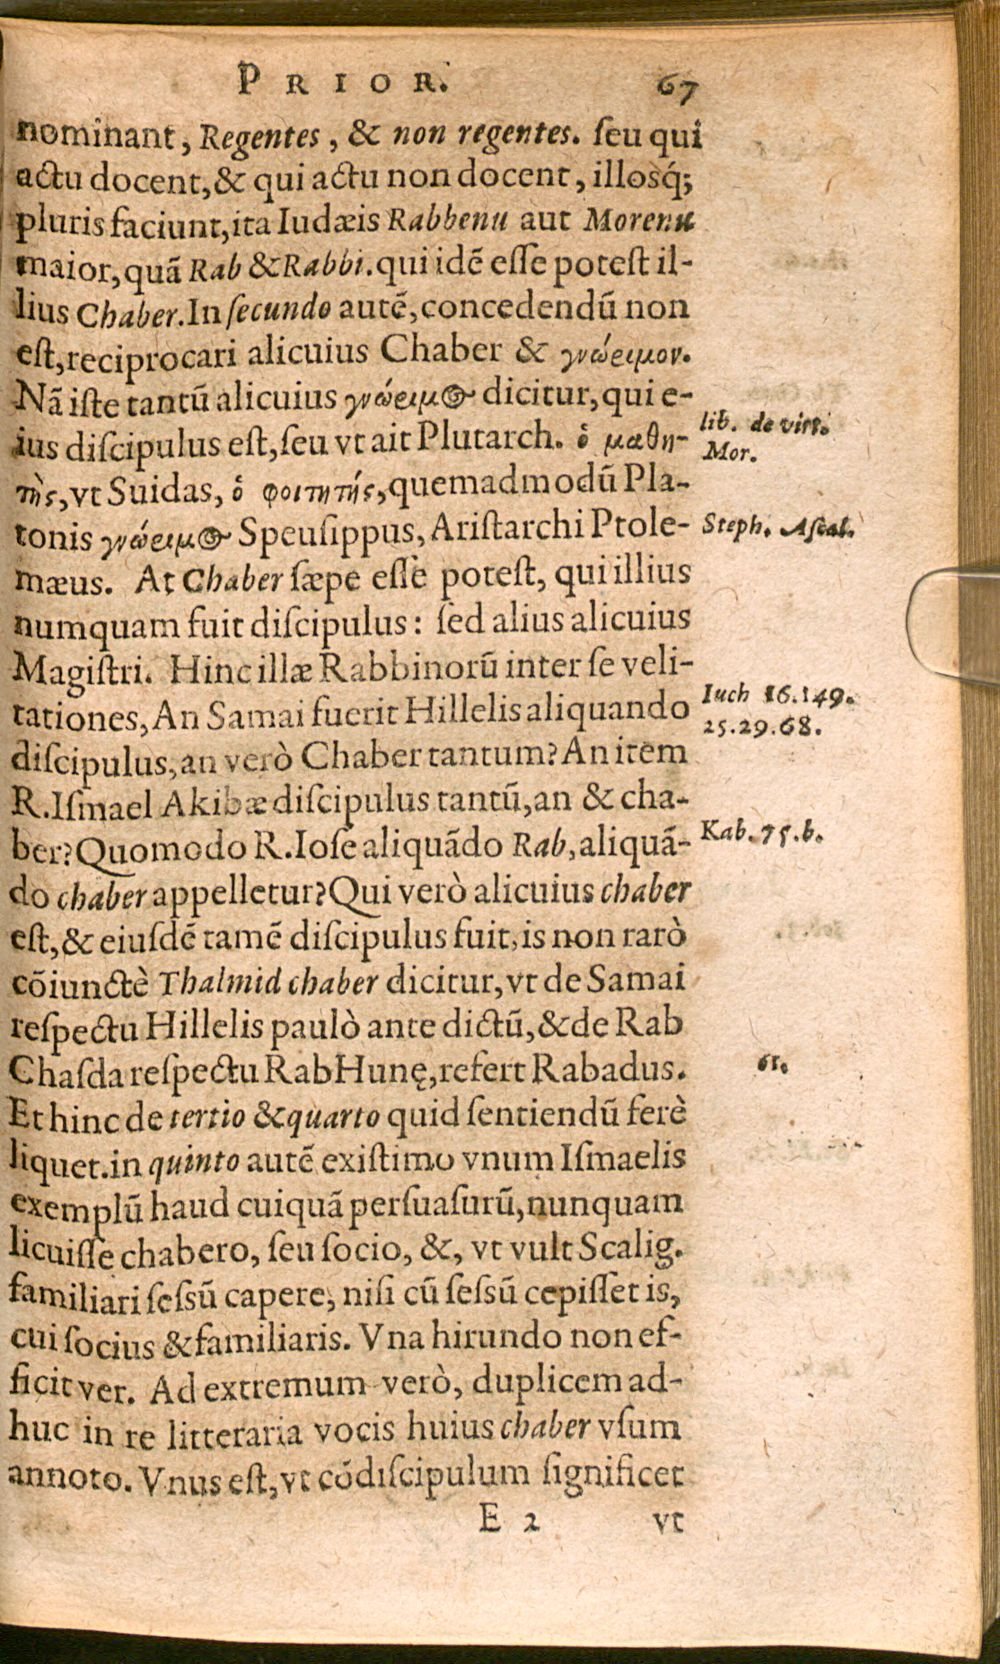 PRIOR. 67
nominant, Regentes, & non regentes. ſeu qui
actu docent, & qui actu non docent, illosq́;
pluris faciunt, ita Iudæis Rabbenu aut Morenu
maior, quã Rab & Rabbi. qui idẽ eſſe poteſt il-
lius Chaber. In ſecundo autẽ, concedendũ non
eſt, reciprocari alicuius Chaber & γνώριμον.
Nã iſte tantũ alicuius γνώριμος dicitur, qui e-
ius diſcipulus eſt, ſeu vt ait Plutarch. ὁ μαθη-
lib. de virt.
Mor.
τὴς, vt Suidas, ὁ φοιτητής, quemadmodũ Pla-
tonis γνώριμος Speuſippus, Ariſtarchi Ptole-
Steph. Aſcal.
mæus. At Chaber ſæpe eſſe poteſt, qui illius
numquam fuit diſcipulus: ſed alius alicuius
Magiſtri. Hinc illæ Rabbinorũ inter ſe veli-
tationes, An Samai fuerit Hillelis aliquando
Iuch 16.149.
25.29.68.
diſcipulus, an verò Chaber tantum? An item
R. Iſmael Akibæ diſcipulus tantũ, an & cha-
ber? Quomodo R. Ioſe aliquãdo Rab, aliquã-
Kab. 75.b.
do chaber appelletur? Qui verò alicuius chaber
eſt, & eiuſdẽ tamẽ diſcipulus fuit, is non rarò
cõiunctè Thalmid chaber dicitur, vt de Samai
reſpectu Hillelis paulò ante dictũ, & de Rab
Chaſda reſpectu Rab Hunę, refert Rabadus.
61.
Et hinc de tertio & quarto quid ſentiendũ ferè
liquet. in quinto autẽ exiſtimo vnum Iſmaelis
exemplũ haud cuiquã perſuaſurũ, nunquam
licuiſſe chabero, ſeu ſocio, &, vt vult Scalig.
familiari ſeſsũ capere, niſi cũ ſeſsũ cepiſſet is,
cui ſocius & familiaris. Vna hirundo non ef-
ficit ver. Ad extremum verò, duplicem ad-
huc in re litteraria vocis huius chaber vſum
annoto. Vnus eſt, vt cõdiſcipulum ſignificet
E 2 vt